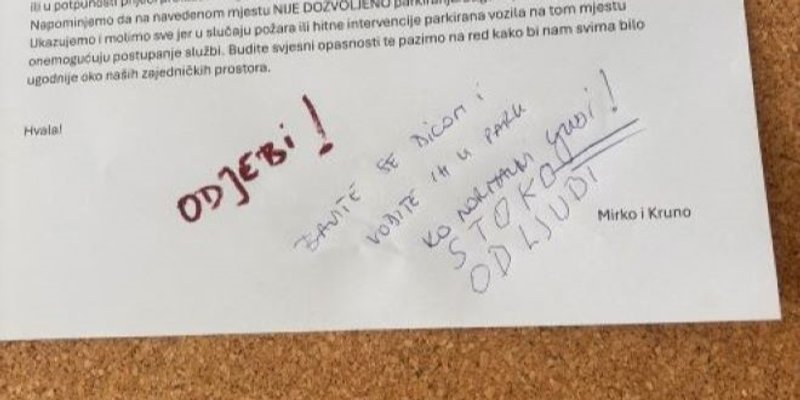 ili u potpunosti
Napominjemo da na navedenom mjestu NIJE DOZVOLJENO
Ukazujemo i molimo sve jer u slučaju požara ili hitne intervencije parkirana vozila na tom mjestu
onemogućuju postupanje službi. Budite svjesni opasnosti te pazimo na red kako bi nam svima bilo
ugodnije oko naših zajedničkih prostora.
Hvala!
ODJEBI!
BAVITE SE DICOM I
VODITE IH U PARK
KO NORMALNI LJUDI!
STOKO
OD LJUDI
Mirko i Kruno